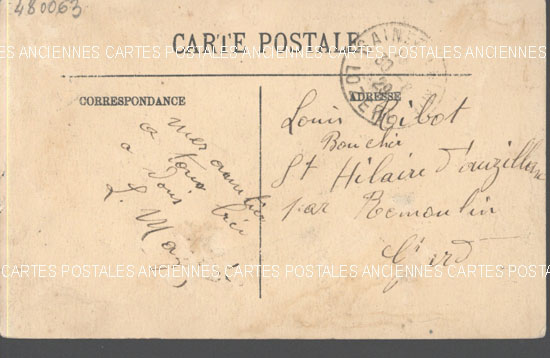 480063
CARTE POSTALE
CARTES POSTALES ANCIENNES CARTES POSTALES ANCIENNES CARTES POSTALES ANCIENNES
CORRESPONDANCE
ADRESSE
a tous
à vous
L.
Louis Ribot
Boucher
St Hilaire d'ouzilhan
par Remoulin
Gard
CARTES POSTALES ANCIENNES CARTES POSTALES ANCIENNES CARTES POSTALES ANCIENNES